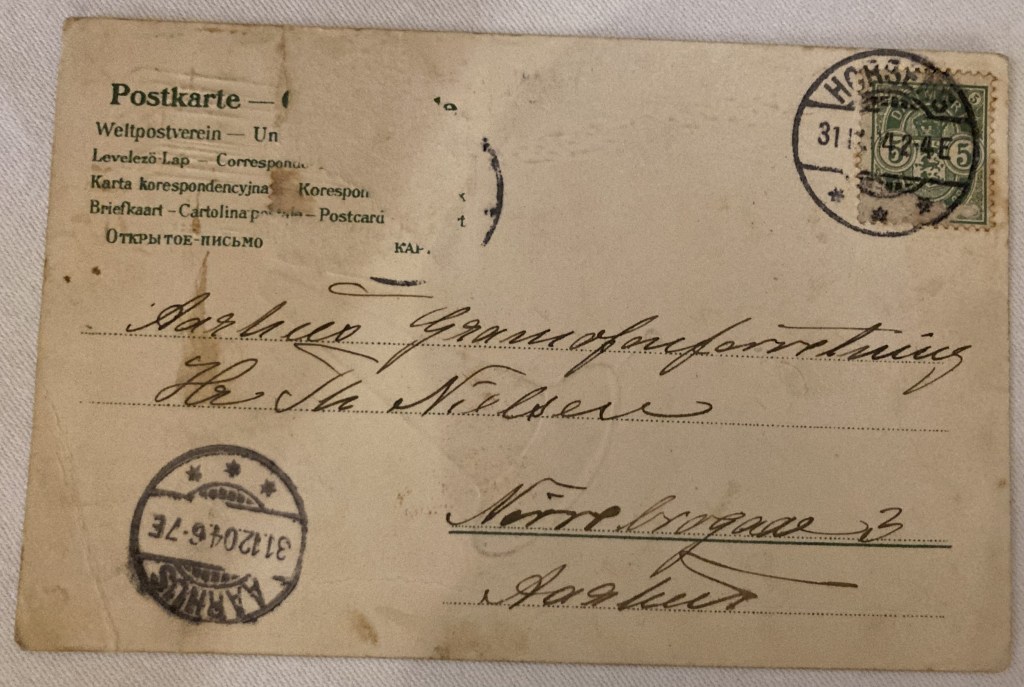 Postkarte —
Weltpostverein — Un
Levelező-Lap — Correspond
Karta korespondencyjna Korespon
Briefkaart – Cartolina – Postcard
Открытое-письмо
HORSENS
5 5
31 2-4E
Aarhus Gramofonforretning
Hr Th Nielsen
Nörrebrogade 3
Aarhus
31.12.04 6-7E
AARHUS